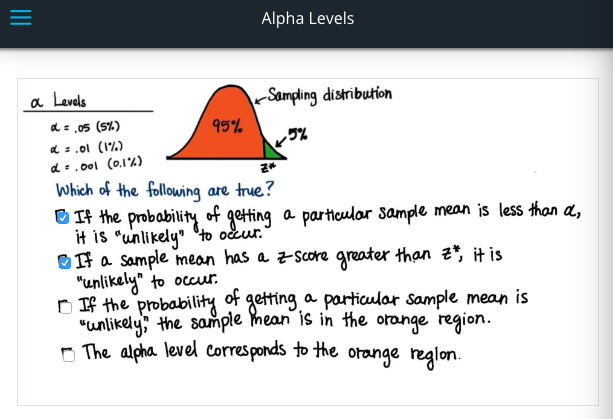 Alpha Levels
α Levels
α = .05 (5%)
α = .01 (1%)
α = .001 (0.1%)
Sampling distribution
95%
5%
z*
Which of the following are true?
If the probability of getting a particular sample mean is less than α,
it is "unlikely" to occur.
If a sample mean has a z-score greater than z*, it is
"unlikely" to occur.
If the probability of getting a particular sample mean is
"unlikely," the sample mean is in the orange region.
The alpha level corresponds to the orange region.